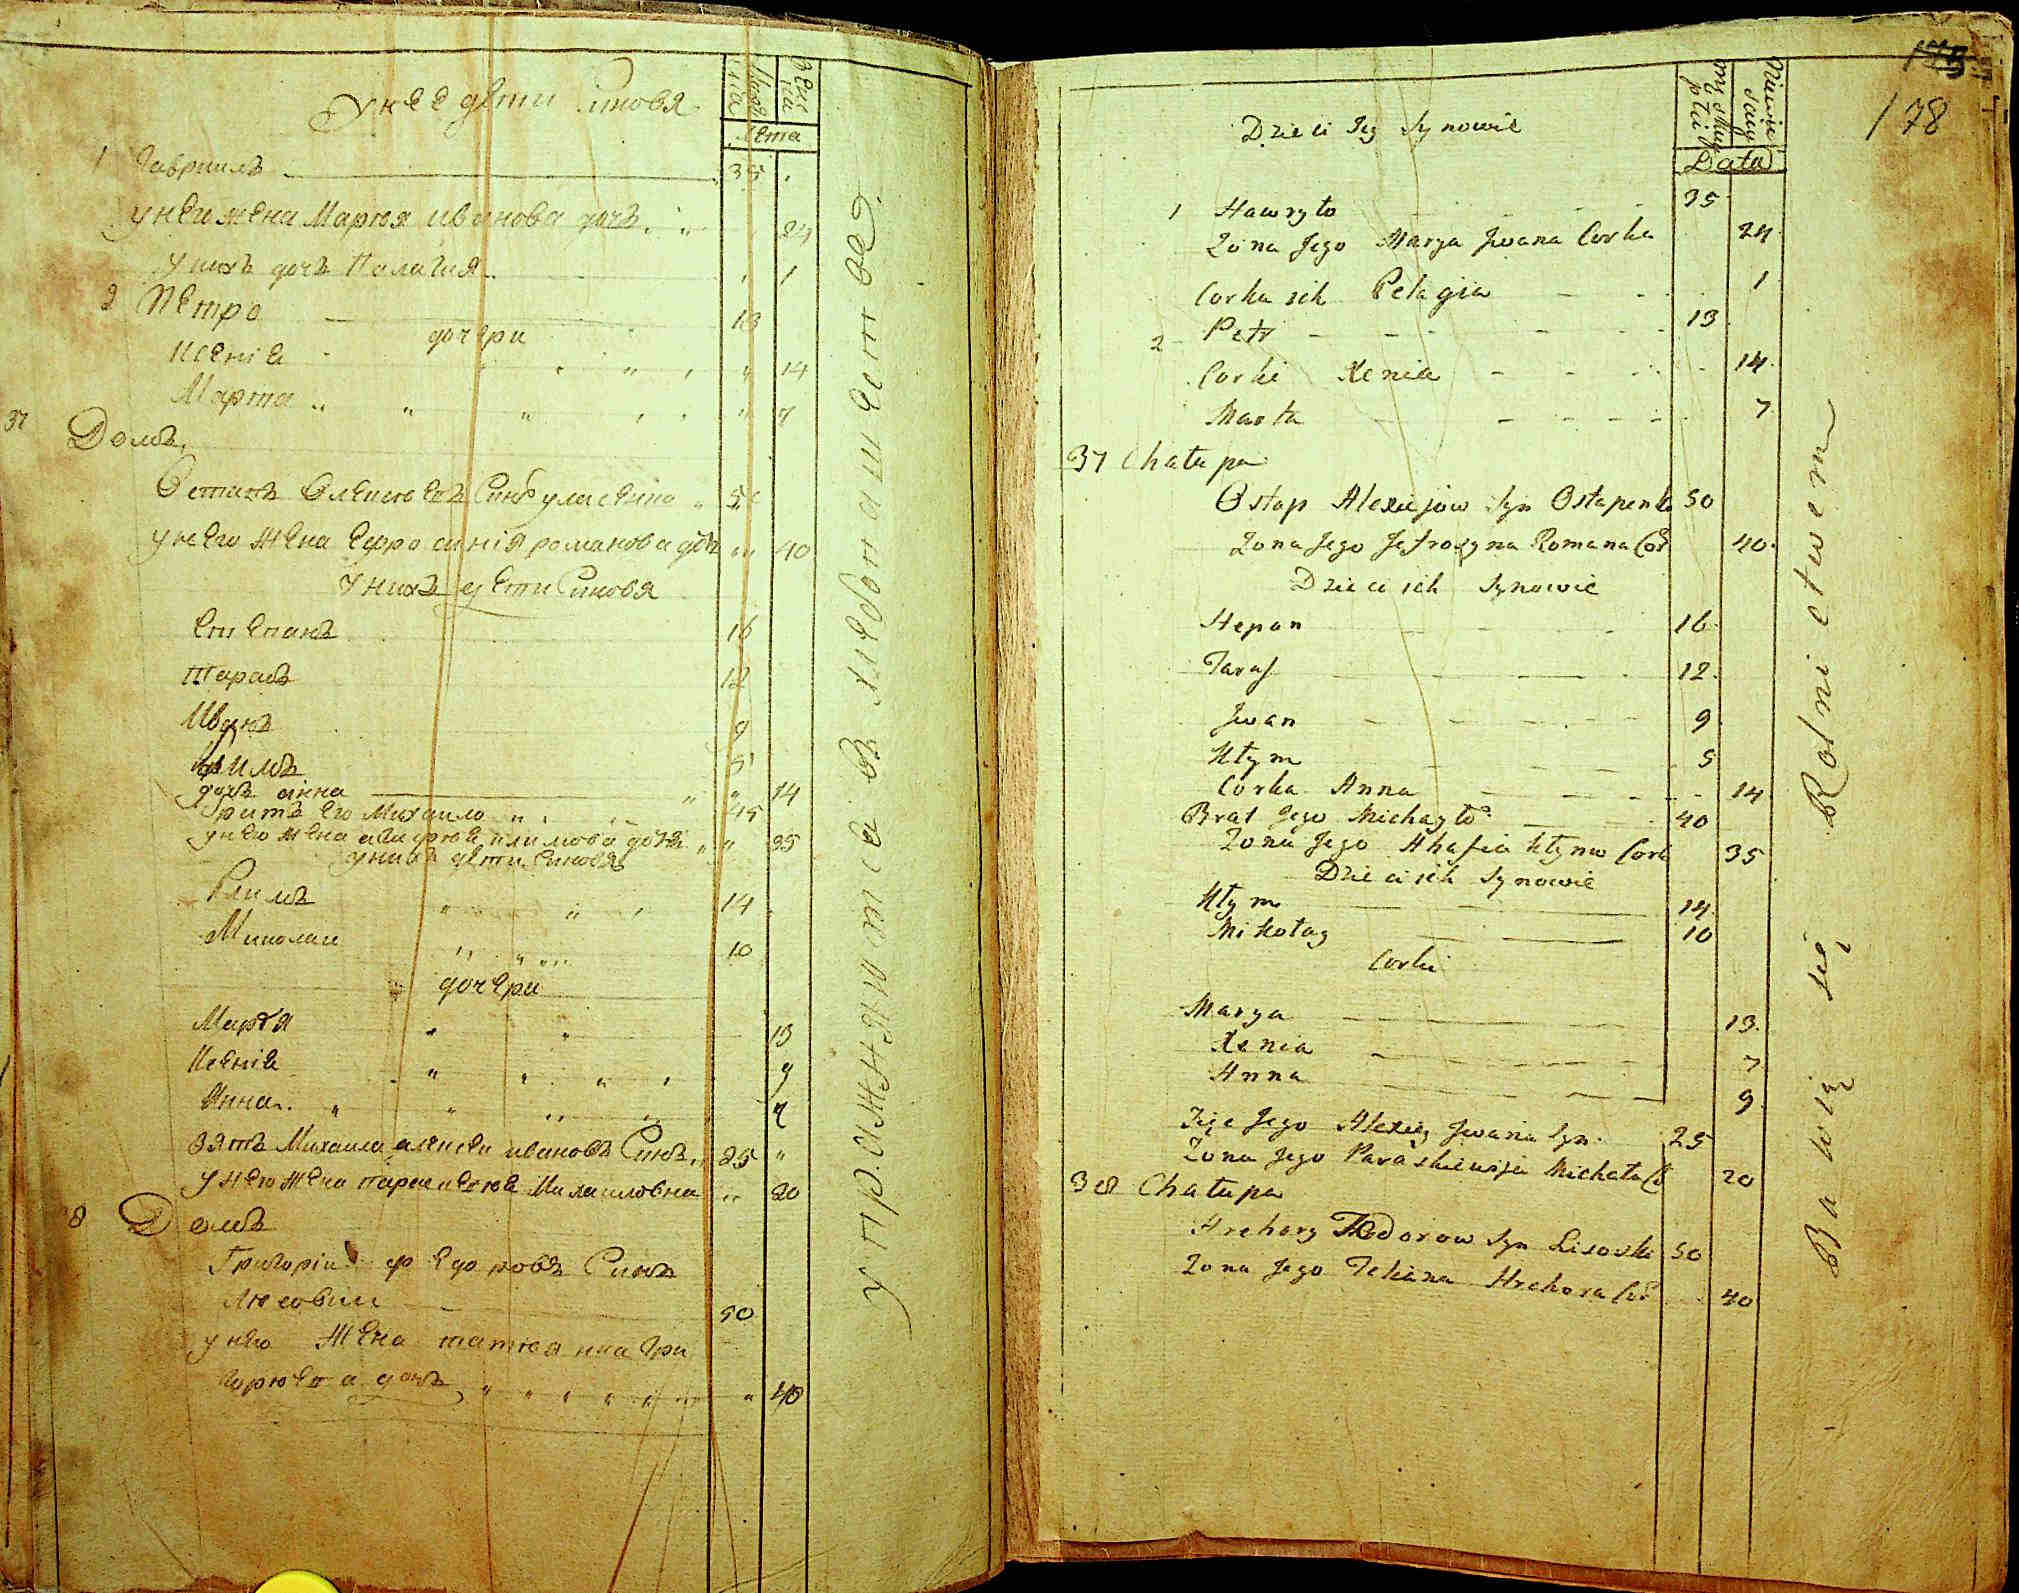 у нее дети Синовя
Лета
1 Гавриилъ 35
у неи жена Мария иванова дочь 24
у нихъ дочь Палагия 1
2 Петро 13
дочери
Ксения 14
Марта 7
37 Домъ
Остапъ Алексеевъ Синъ
у него жена Ефросиния романова дочь 40
у нихъ дети Синовя
Степанъ 16
Тарасъ 12
Иванъ 9
5
дочь анна 14
братъ его Михаило
у него жена дочь 35
у нихъ дети Синовя
Климъ 14
Миколаи 10
дочери
Мария 13
Ксения 9
Анна 7
зять Михаила алексеи ивановъ Синъ 25
у него жена Михаиловна 20
38 Домъ
Григории федоровъ Синъ
50
у него жена татиянна Гри
горова дочь 40
упражняются въ хлебопашестве
178
Lata
Dzieci Jey Synowie
1 Hawryło 35
Zona Jego Marya Jwana Corka 24
Corka ich Pelagia 1
2 Petr 13
Corki Xenia 14
Marta 7
37 Chałupa
Ostap Alexiejow Syn Ostapenko 50
Zona Jego Jefrozyna Romana Cor 40
Dzieci ich Synowie
Stepan 16
Taras 12
Jwan 9
Kłym 5
Corka Anna 14
Brat Jego Michayło 40
Zona Jego Ahafia Kłyma Cork 35
Dzieci ich Synowie
Kłym 14
Mikołay 10
Corki
Marya 13
Xenia 7
Anna 9
Zięc Jego Alexiey Jwana Syn 25
Zona Jego Paraskiewija Michała Co 20
38 Chałupa
Hrehory Fedorow Syn 50
Zona Jego Teliana Hrehora Cor 40
Bawią się Rolnictwem